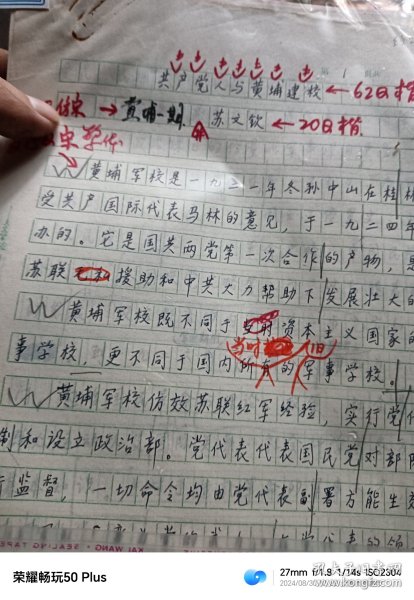 共产党人与黄埔建校 ← 62日楷
仕宋 → 黄埔一期 苏文钦 ← 20日楷
宋 学 体
黄埔军校是一九二一年冬孙中山在桂林
受共产国际代表马林的意见，于一九二四年
办的。它是国共两党第一次合作的产物，是
苏联援助和中共大力帮助下发展壮大的
黄埔军校既不同于资本主义国家的
当时 旧
事学校，更不同于国内所有的军事学校。
黄埔军校仿效苏联红军经验，实行党代
制和设立政治部。党代表代表国民党对部队
监督，一切命令均由党代表副署方能生效
KAI WANG · SEALING TAPE
荣耀畅玩50 Plus
27mm f/1.8 1/14s ISO2304
2024/08/30
www.kongfz.com